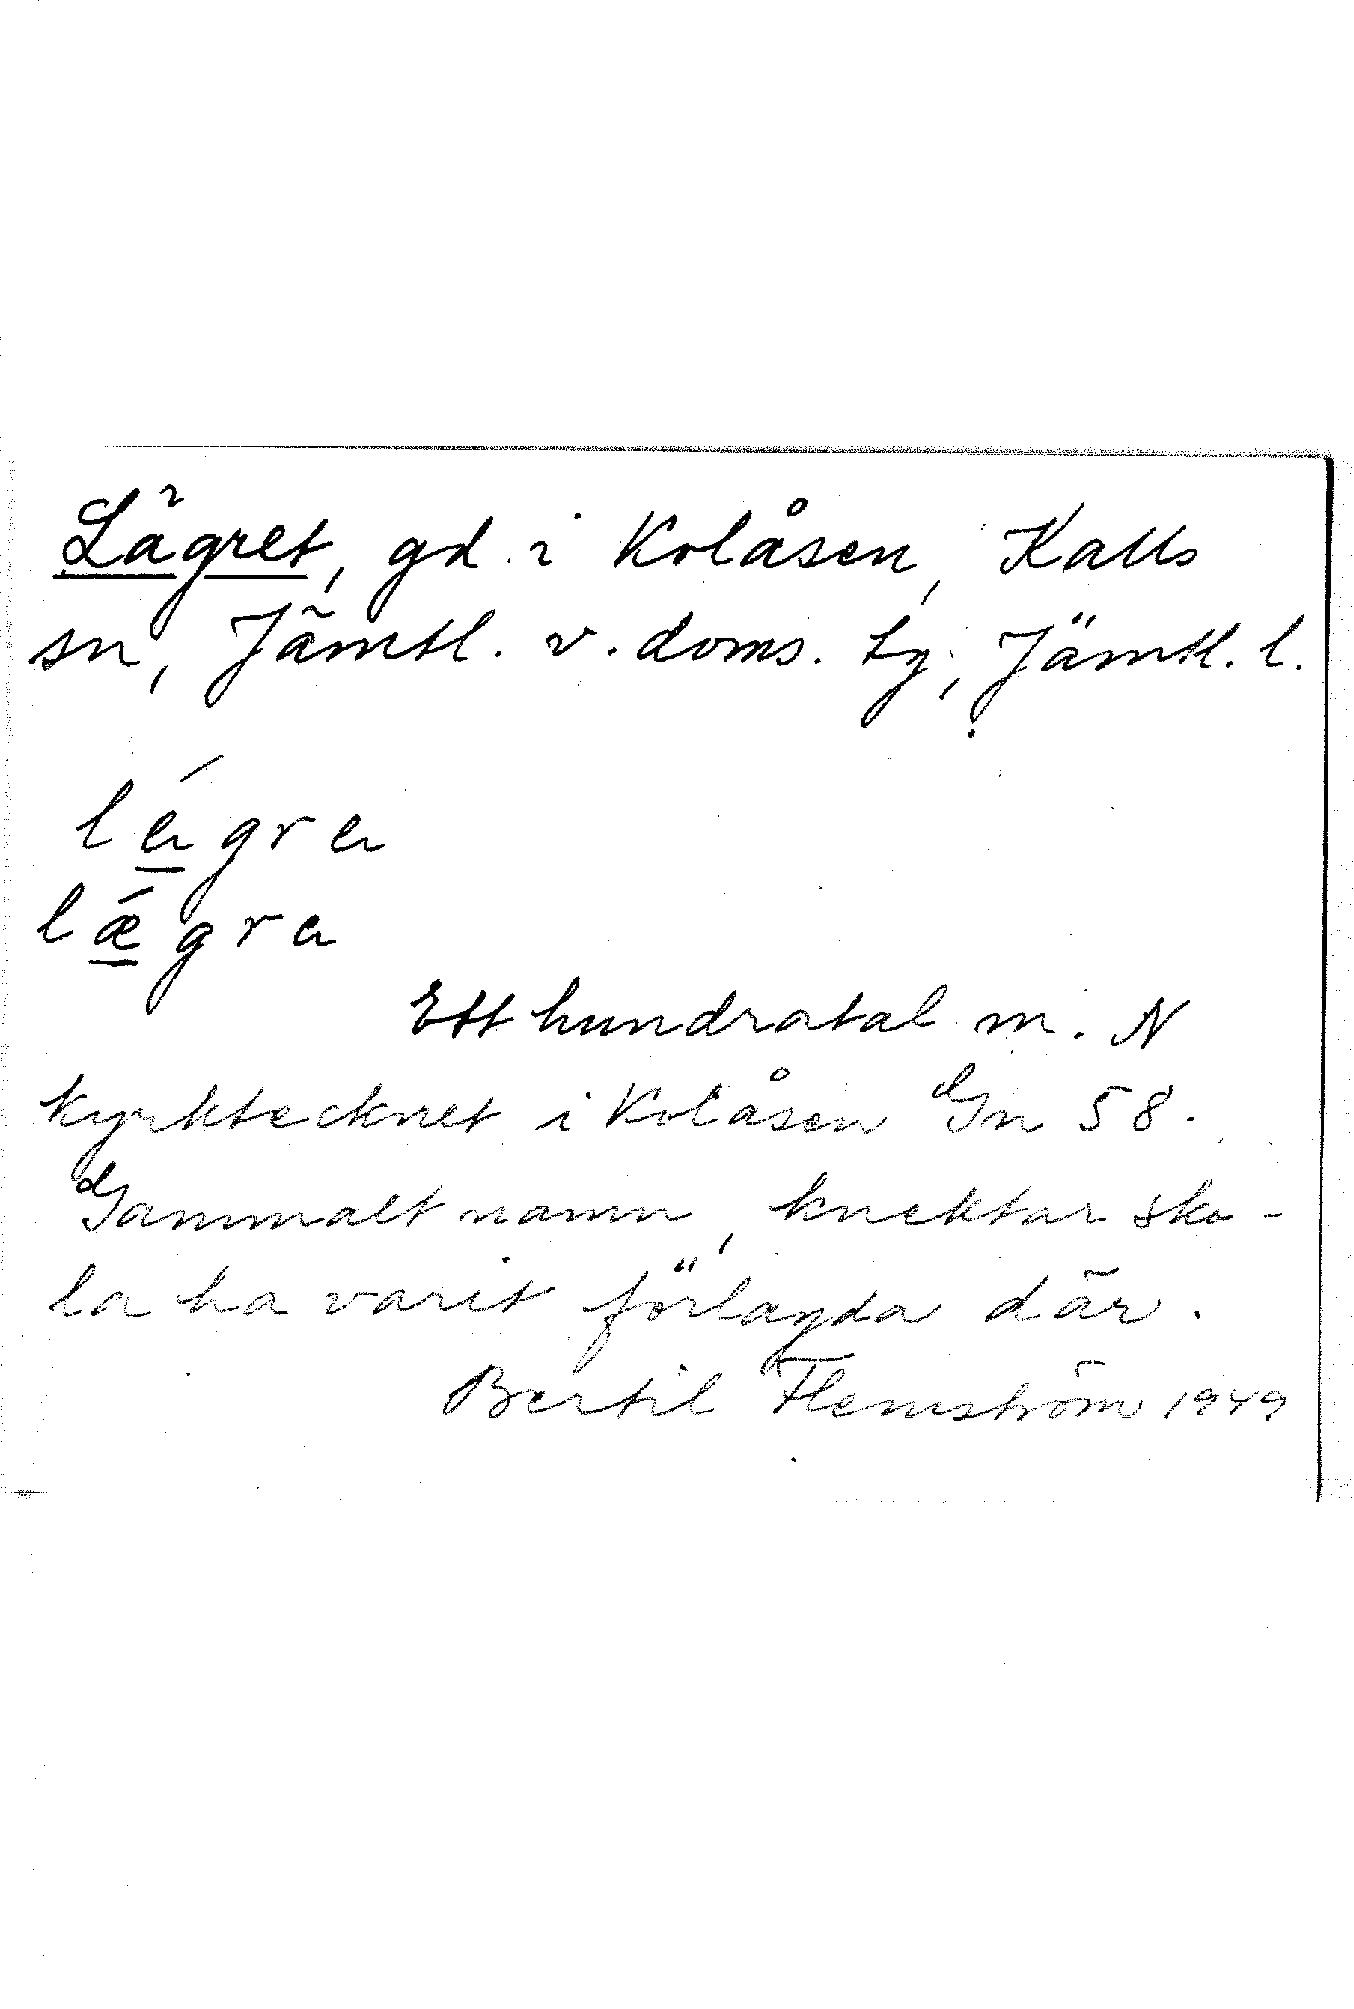 Lägret, gd. i Kolåsen, Kalls
sn, Jämtl. v. doms. tg, Jämtl. l.
lágra
lǽgra
Ett hundratal m. N
kyrktecknet i Kolåsen Gn 58.
Gammalt namn, knektar sko-
la ha varit förlagda där.
Bertil Flemström 1949